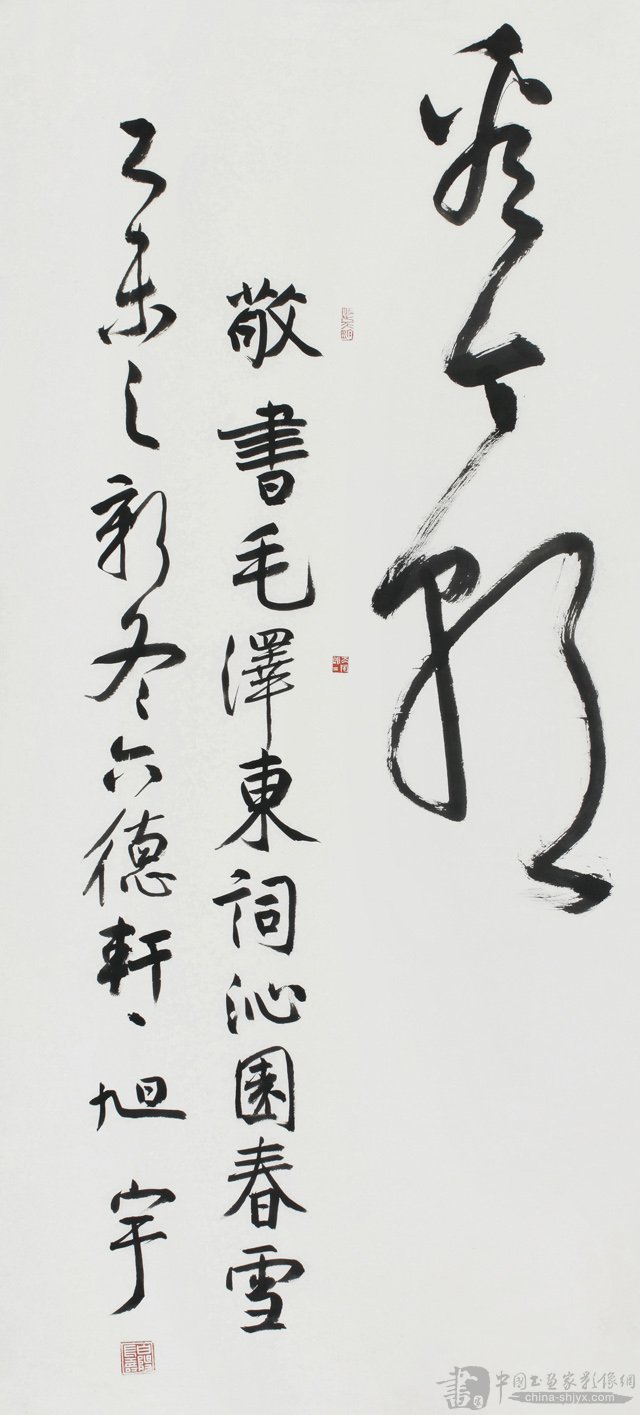 看今朝
敬書毛澤東詞沁園春雪
乙未之新冬六德軒、旭宇
中国书画家影像網
china-shjyx.com